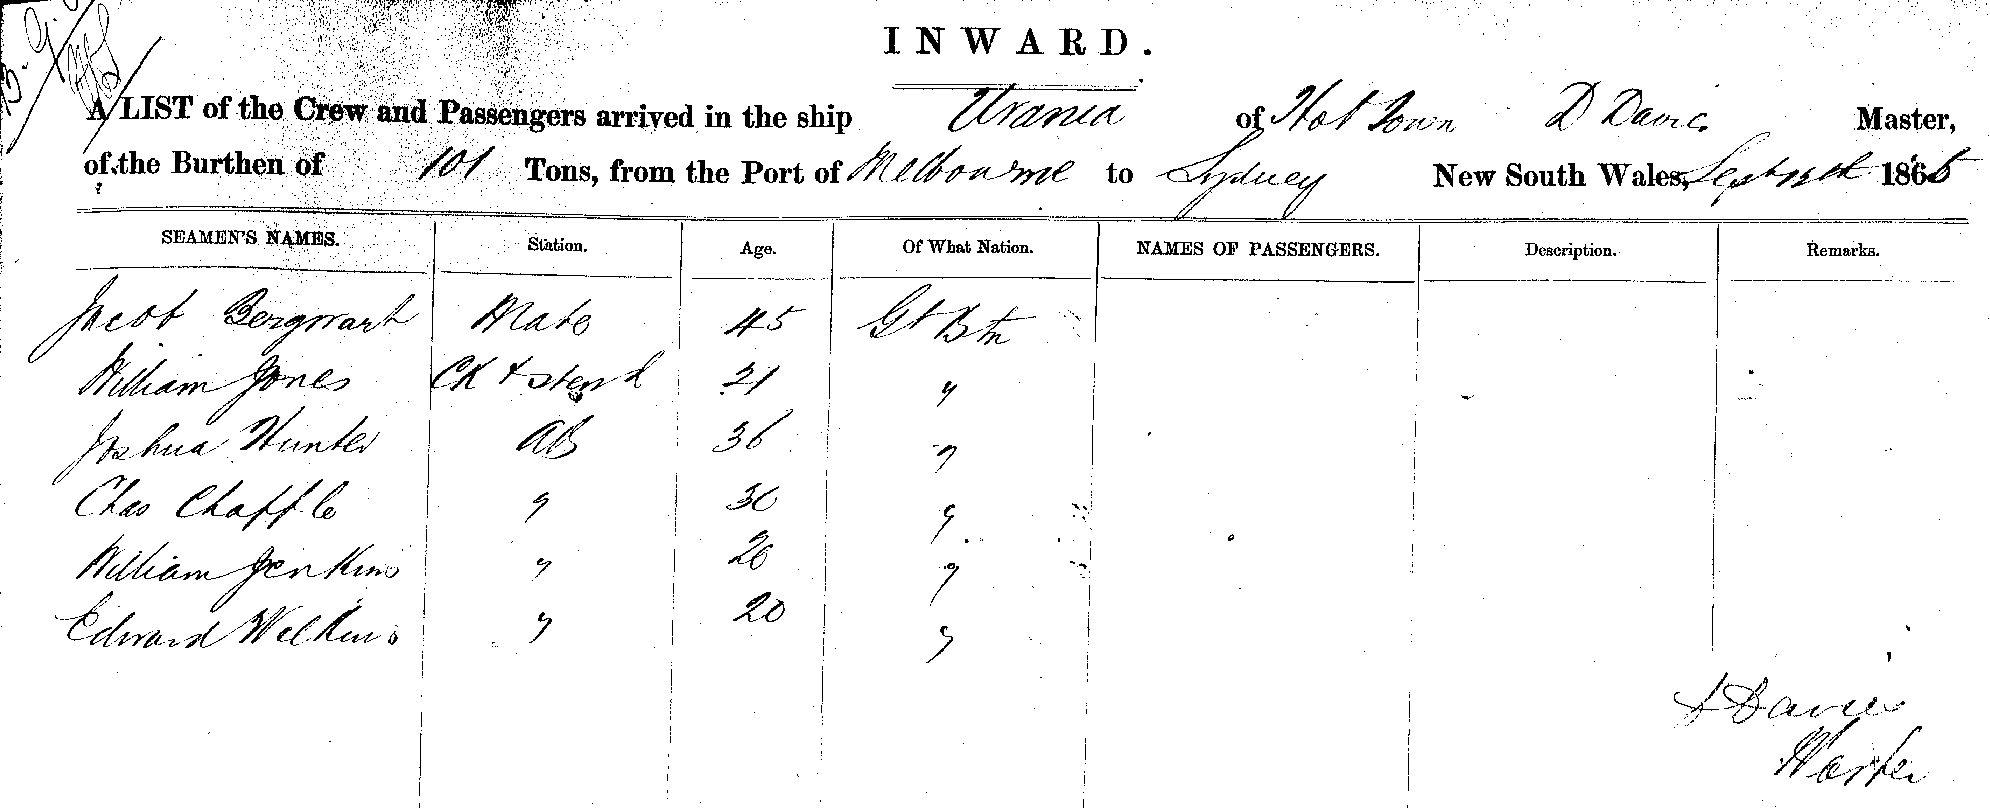 INWARD.
A LIST of the Crew and Passengers arrived in the ship Urania of Hob Town D Davies Master,
of the Burthen of 101 Tons, from the Port of Melbourne to Sydney New South Wales, Sept 12th 1865
SEAMEN'S NAMES. Station. Age. Of What Nation. NAMES OF PASSENGERS. Description. Remarks.
Jacob Bergwart Mate 45 Gt Btn
William Jones CK & Stewd 21 "
Joshua Hunter AB 36 "
Chas Chaffle " 30 "
William Jenkins " 20 "
Edward Welkins " 20 "
D Davies
Master